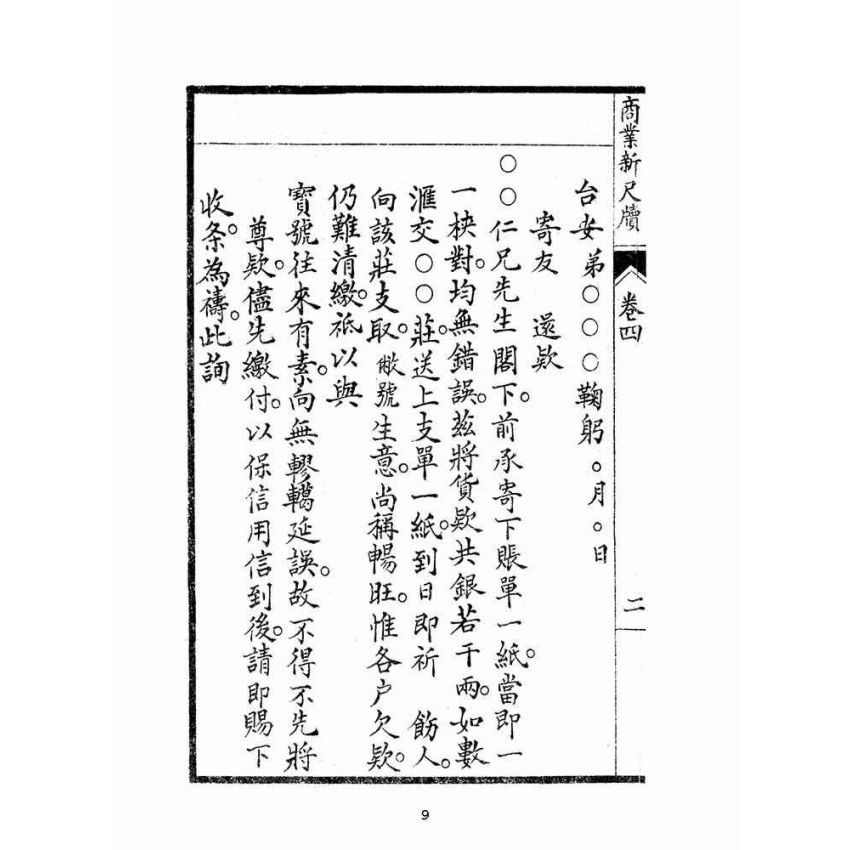 商業新尺牘 卷四 二
台安弟○○○鞠躬○月○日
寄友 還欵
○○仁兄先生閣下。前承寄下賬單一紙。當即一
一核對。均無錯誤。茲將貨欵共銀若干兩。如數
滙交○○莊。送上支單一紙。到日即祈 飭人。
向該莊支取。敝號生意。尚稱暢旺。惟各户欠欵。
仍難清繳。祗以與
寶號往來有素。向無轇轕延誤。故不得不先將
尊欵。儘先繳付。以保信用信到後。請即賜下
收条。為禱。此詢
9